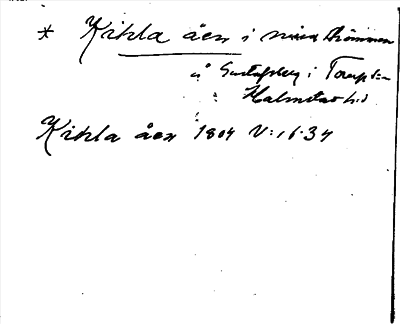 * Kikla åen i norra strömmen
å Gustafsberg i Torup s:n
Halmstad h:d
Kikla åen 1804 V:16:34